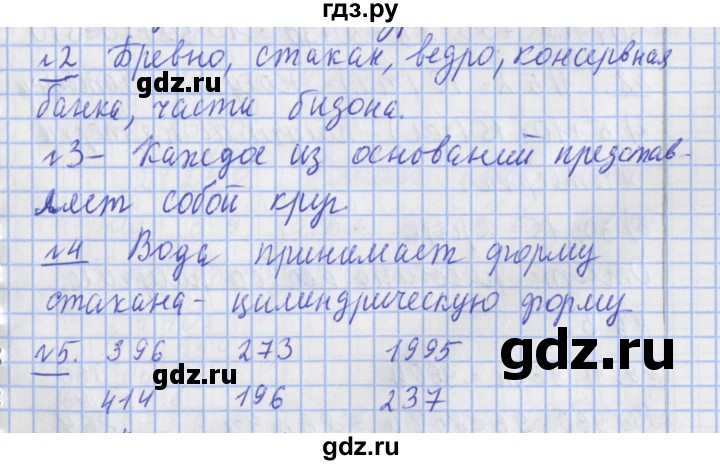 гдз.ру
№2 Бревно, стакан, ведро, консервная
банка, части бизона.
№3- Каждое из оснований представ-
ляет собой круг
№4 Вода принимает форму
стакана - цилиндрическую форму
№5. 396 273 1995
414 196 237
gdz.ru
gdz.ru
gdz.ru
gdz.ru
gdz.ru
gdz.ru